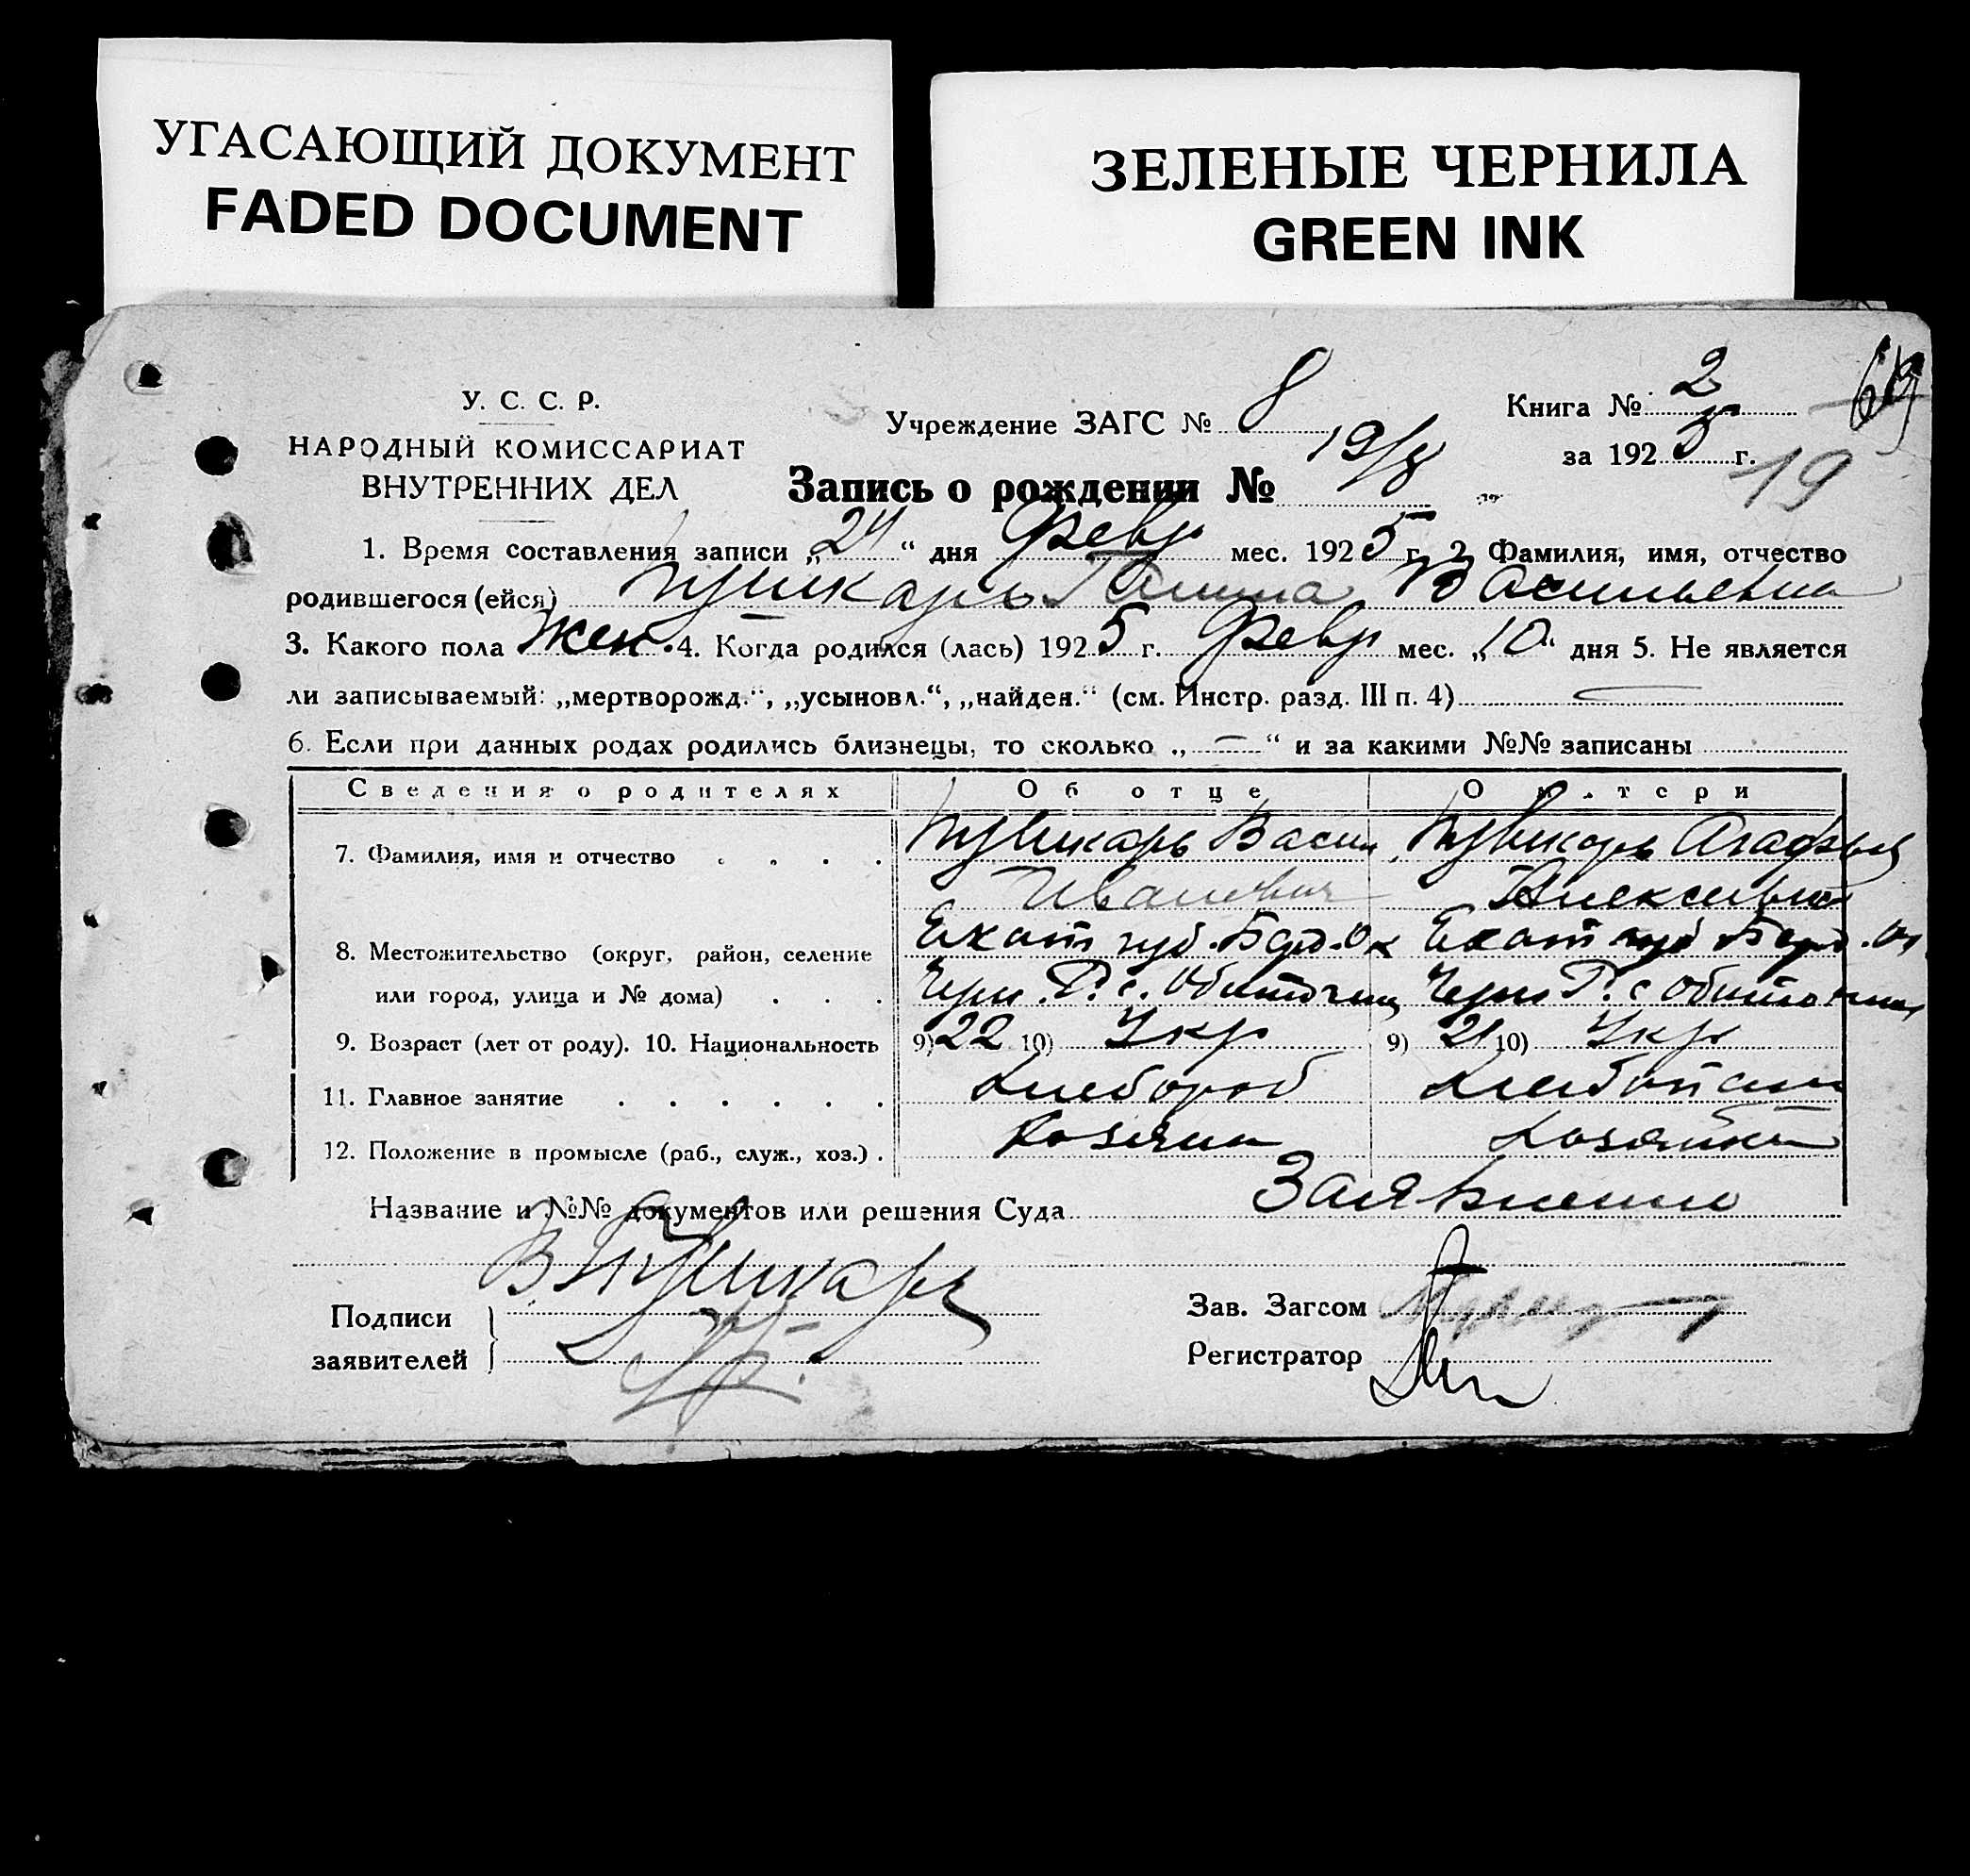 УГАСАЮЩИЙ ДОКУМЕНТ
FADED DOCUMENT
ЗЕЛЕНЫЕ ЧЕРНИЛА
GREEN INK
У. С. С. Р.
НАРОДНЫЙ КОМИССАРИАТ
ВНУТРЕННИХ ДЕЛ
Учреждение ЗАГС № 8
Книга № 2
за 1925 г.
19
Запись о рождении № 19/8
1. Время составления записи „24“ дня Февр мес. 1925 г. 2. Фамилия, имя, отчество
родившегося (ейся) Пушкарь Ганна Васильевна
3. Какого пола Жен. 4. Когда родился (лась) 1925 г. Февр мес. „10“ дня 5. Не является
ли записываемый: „мертворожд.“, „усыновл.“, „найден.“ (см. Инстр. разд. III п. 4) —
6. Если при данных родах родились близнецы, то сколько „—“ и за какими №№ записаны
Сведения о родителях Об отце О матери
7. Фамилия, имя и отчество Пушкарь Васил Пушкарь Агафья
Иванович Алексеевна
8. Местожительство (округ, район, селение Екат губ. Берд. Ок Екат губ Берд. Ок
или город, улица и № дома) Черн. Р. с. Обиточная Черн Р. с Обиточная
9. Возраст (лет от роду). 10. Национальность 9) 22 10) Укр 9) 21 10) Укр
11. Главное занятие Хлебороб
12. Положение в промысле (раб., служ., хоз.) . Хозяин Хозяйка
Название и №№ документов или решения Суда Заявление
В Пушкарь
Подписи
заявителей
Зав. Загсом
Регистратор